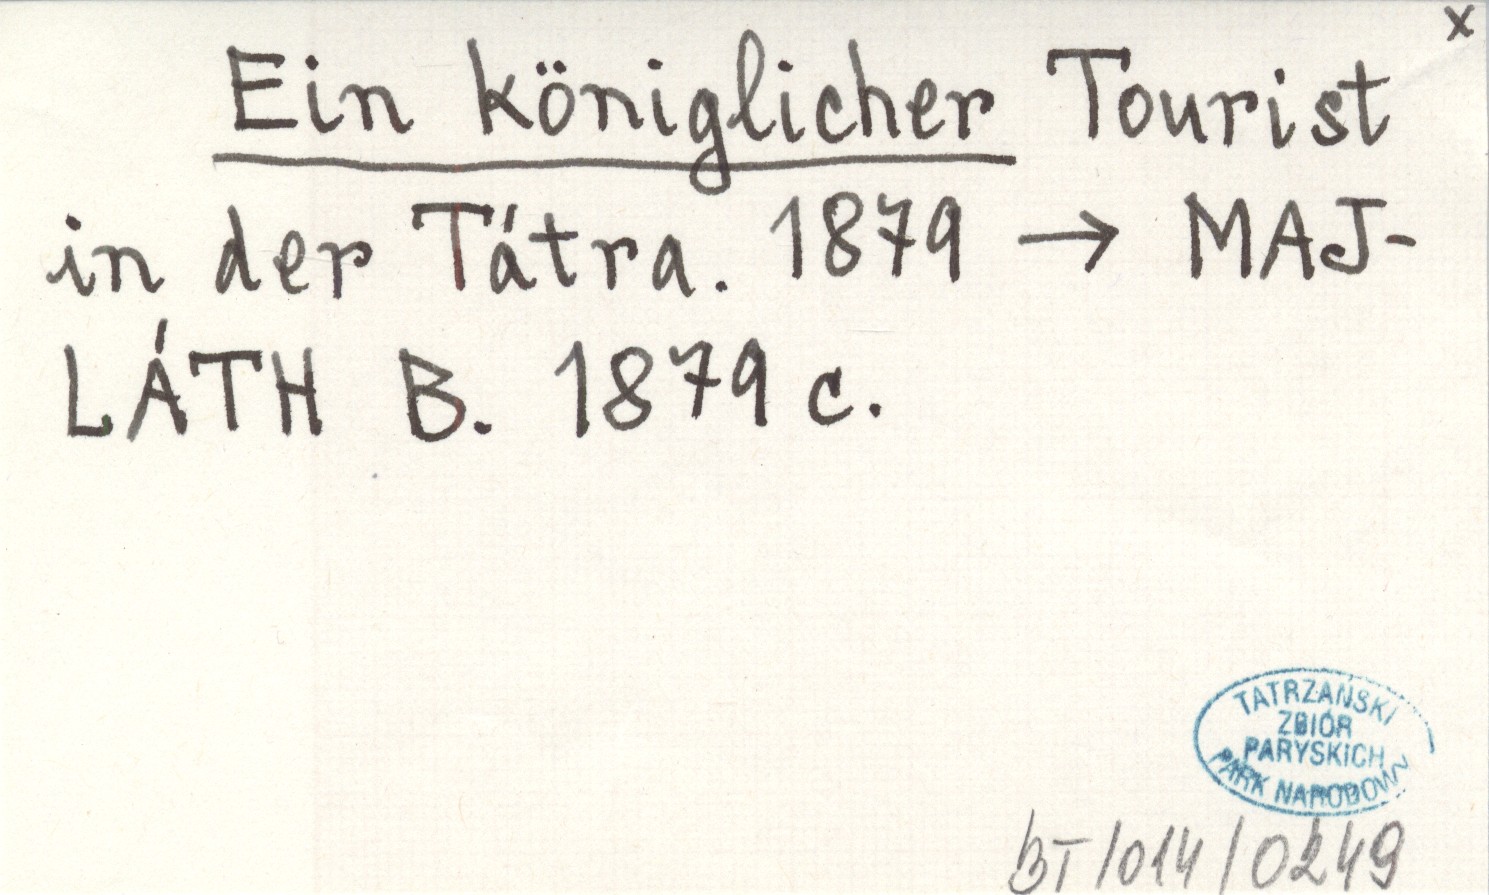 x
Ein königlicher Tourist
in der Tátra. 1879 → MAJ-
LÁTH B. 1879 c.
TATRZAŃSKI
ZBIÓR
PARYSKICH
PARK NARODOWY
BT/014/0249